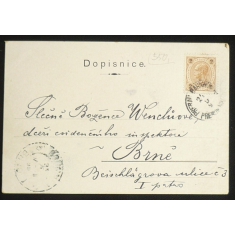 Dopisnice.
Slečně Boženě Wenchiové
dceři evidenčního inspektora
v Brně
Beischlägrova ulice č 3
I. patro